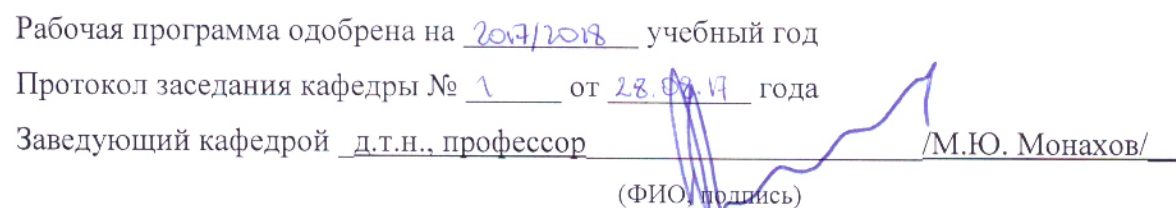 Рабочая программа одобрена на 2017/2018 учебный год
Протокол заседания кафедры № 1 от 28.08.17 года
Заведующий кафедрой д.т.н., профессор /М.Ю. Монахов/
(ФИО, подпись)